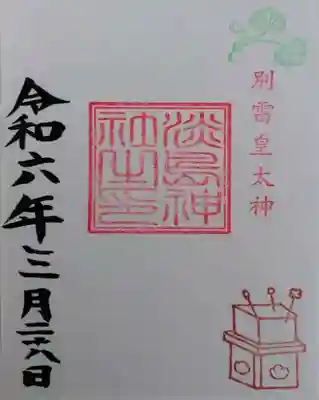 別雷皇太神
淡島神
社之印
令和六年三月二十八日